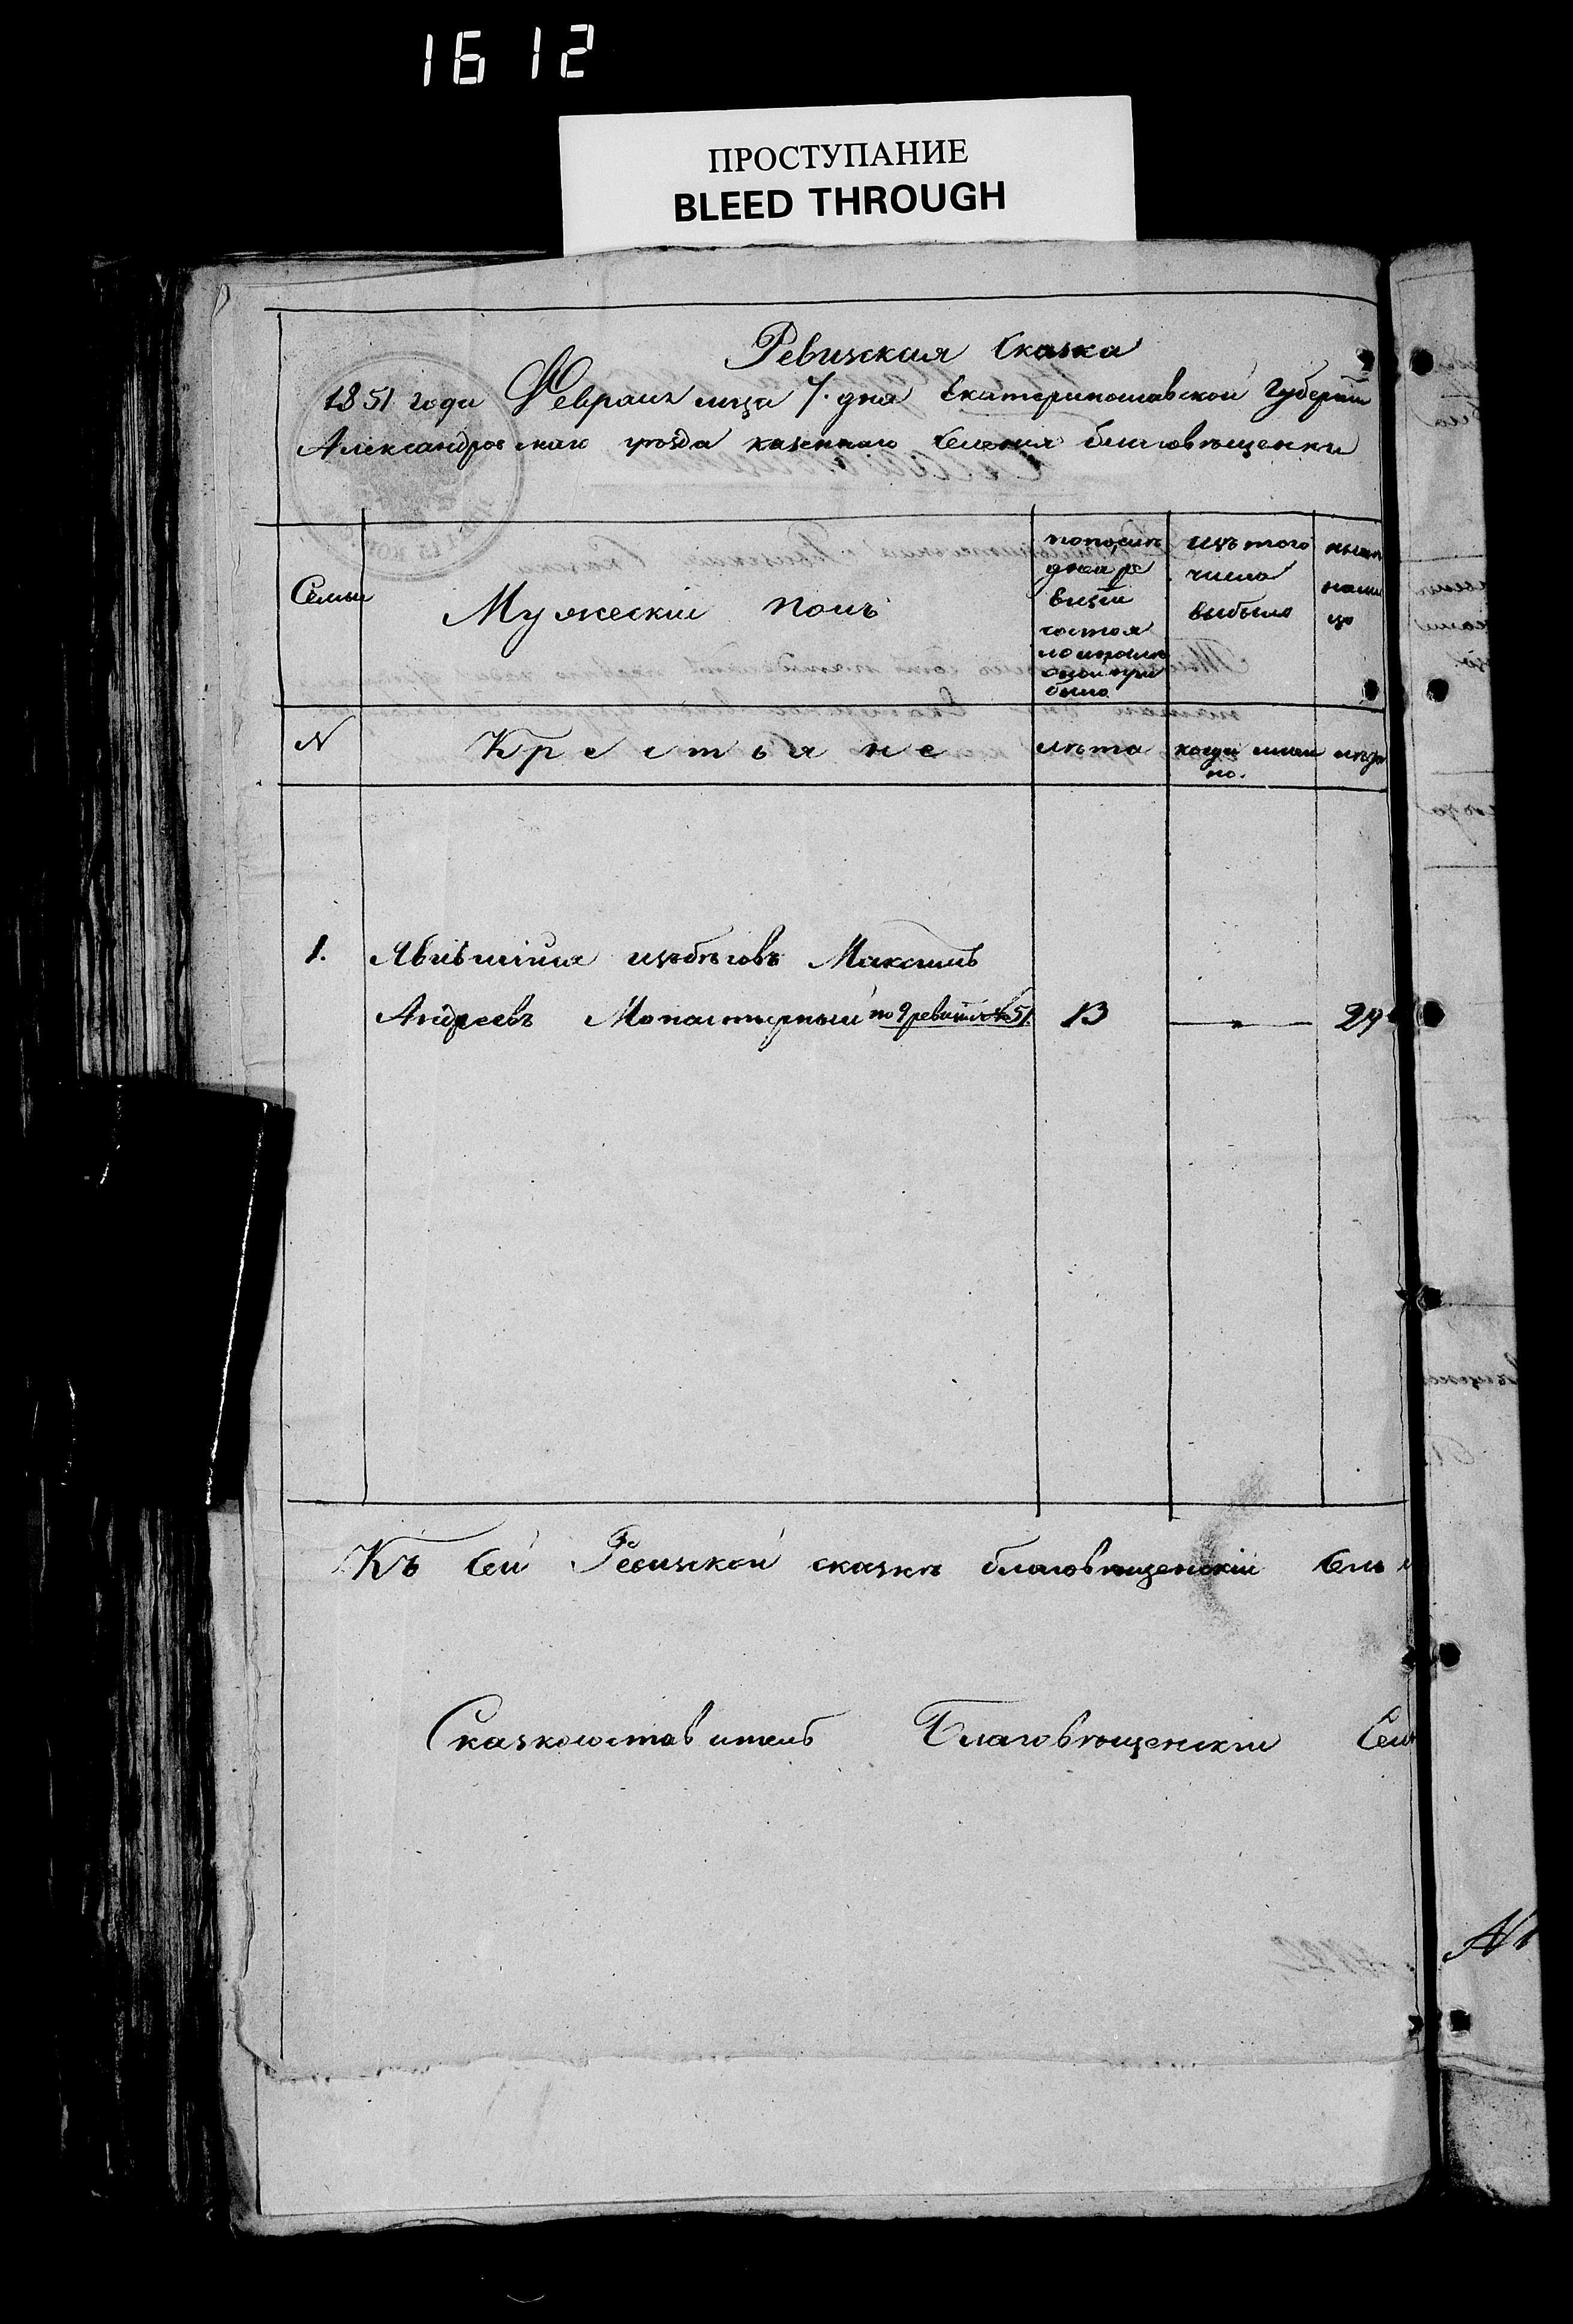 1612
ПРОСТУПАНИЕ
BLEED THROUGH
Ревизская Сказка
1851 года Февраля мца 7. дня Екатеринославской Губерніи
Александровскаго уѣзда казеннаго Селенія благовѣщенки
Семьи
Мужескій полъ
попослѣ
дней ре
визіи
состоя
ло и послѣ
оной при
было
изъ того
числа
выбыло
нынѣ
нали
цо
N
Крестьяне
лѣта
когда имен
но.
лѣта
1.
Явившійся изъ бѣговъ Максимъ
Андреевъ Монастырный по 9 ревизіи № 51.
13
29
Къ Сей Ревизской сказкѣ благовѣщенскій Сель
Сказкосоставитель Благовѣщенскій Сель